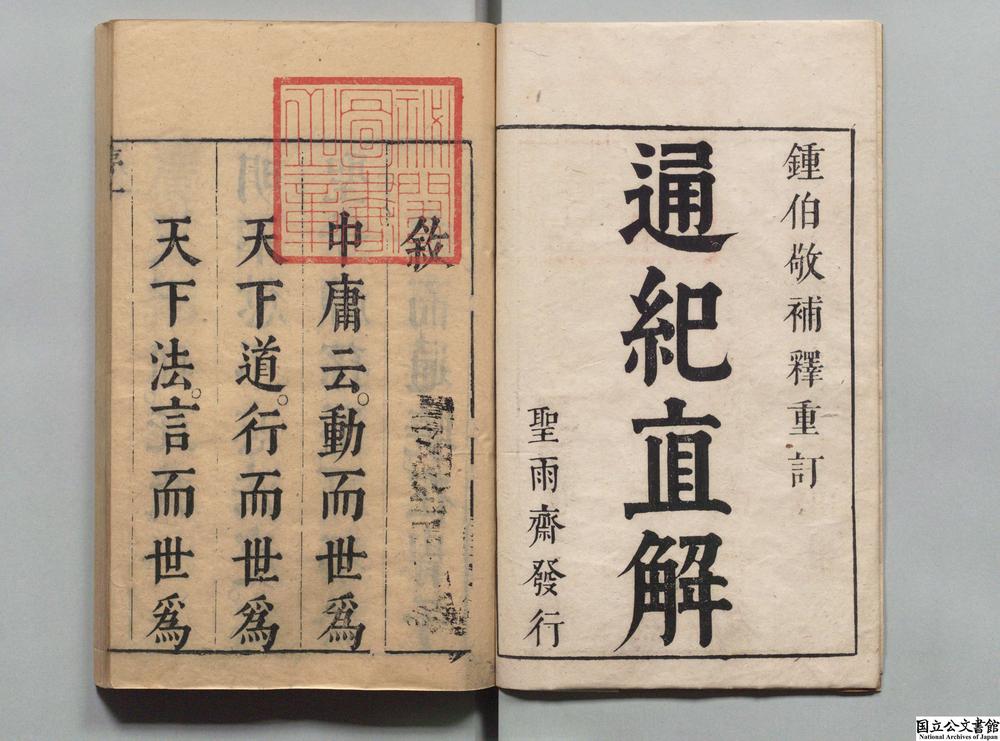 鍾伯敬補釋重訂
通紀直解
聖雨齋發行
敘
中庸云。動而世爲
天下道。行而世爲
天下法。言而世爲
国立公文書館
National Archives of Japan